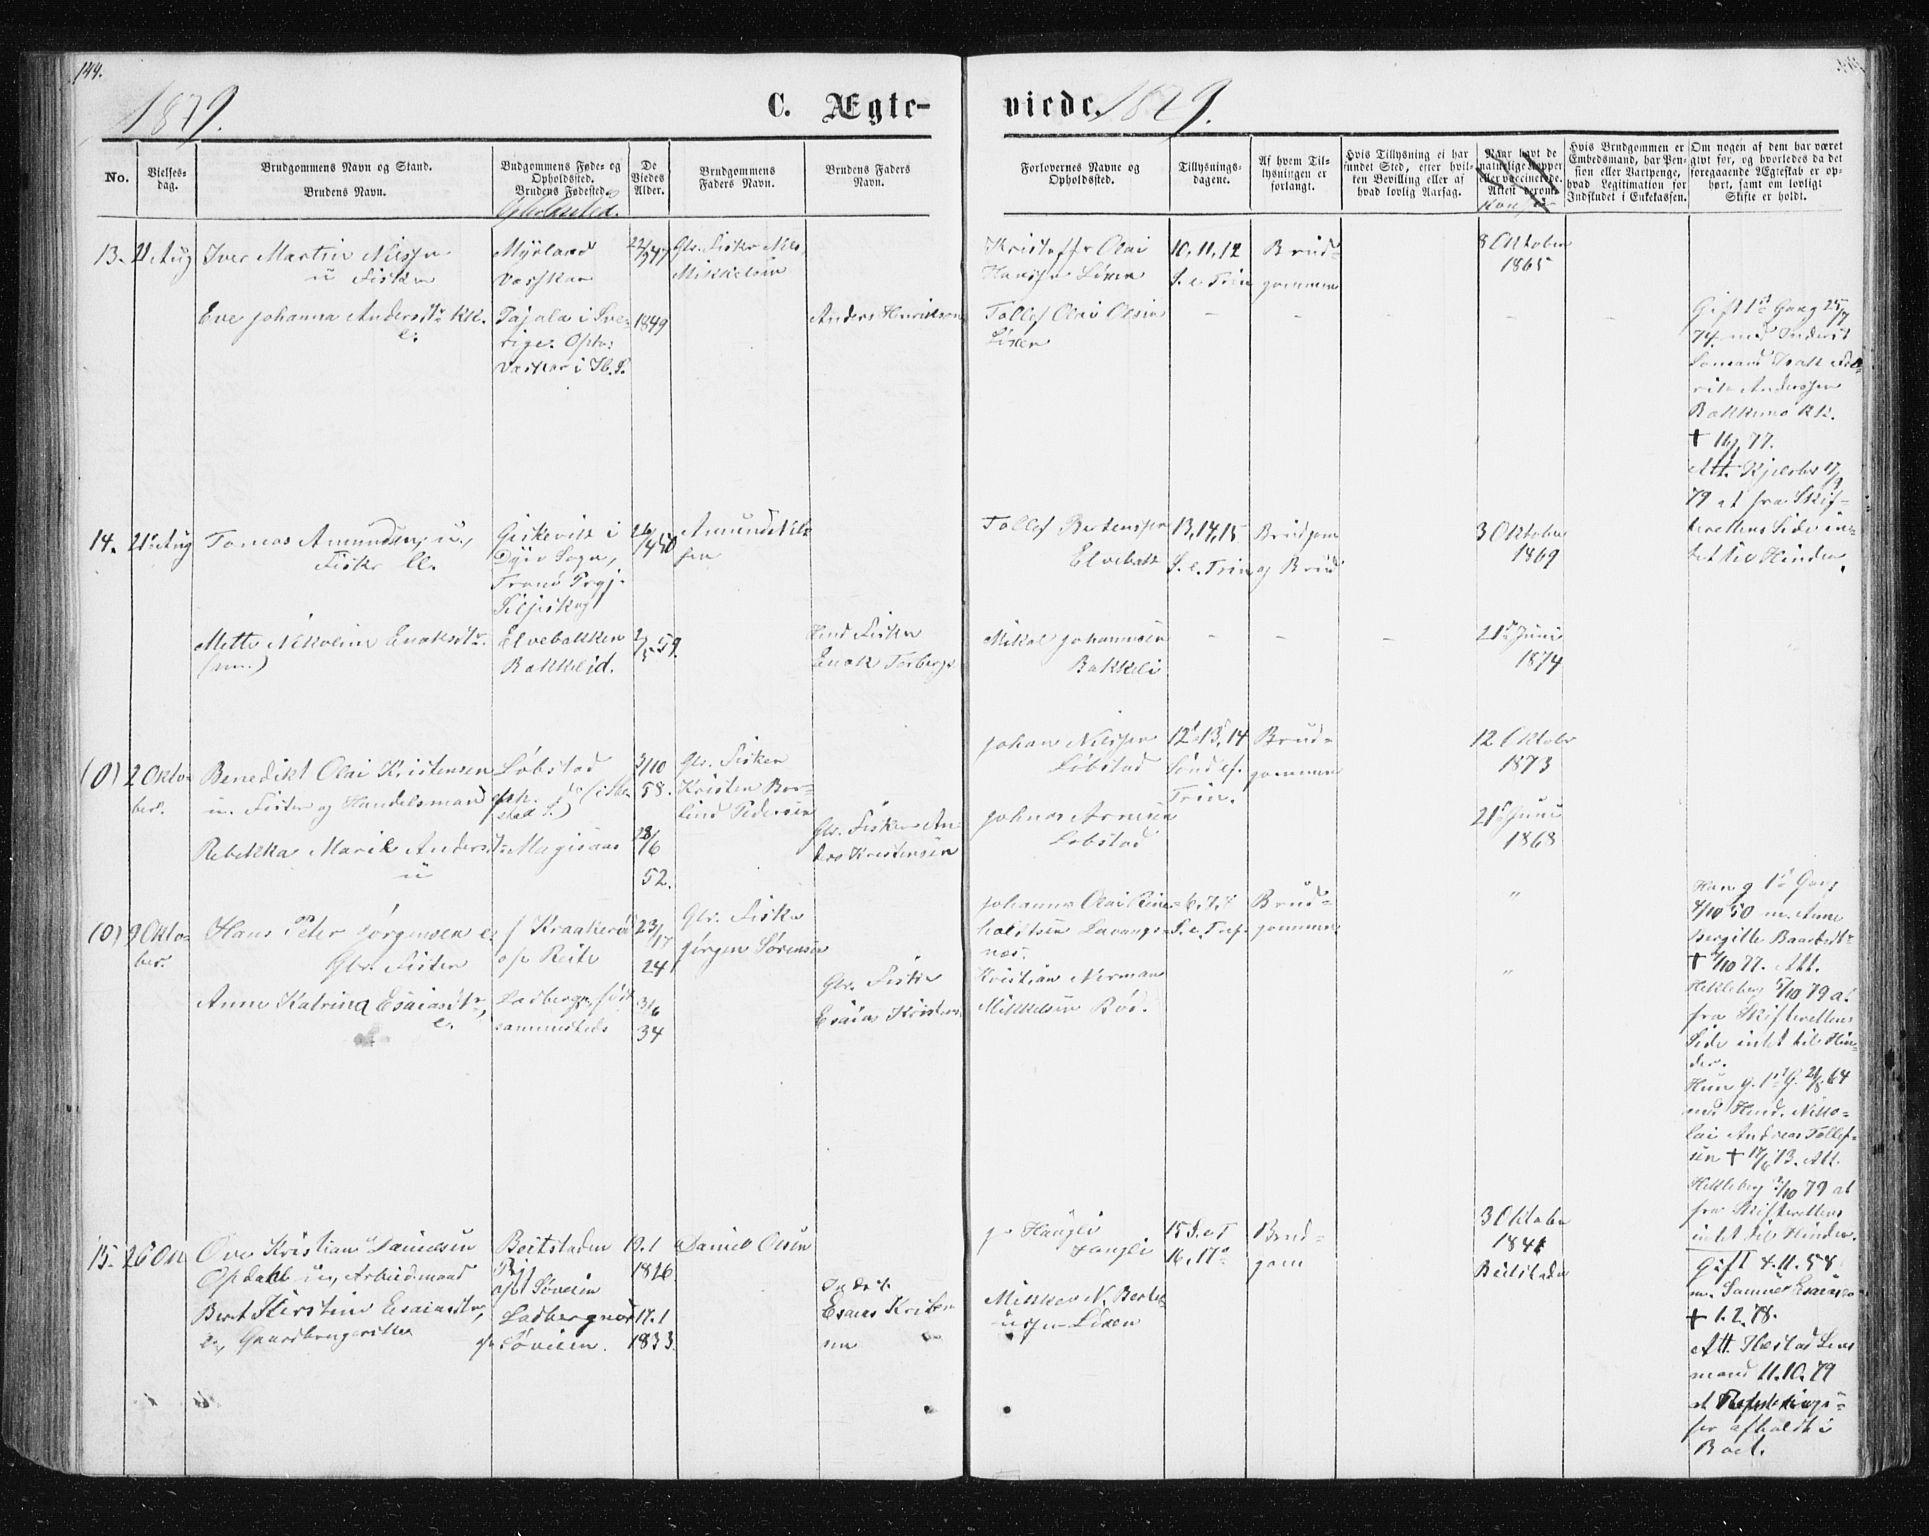 144.
1879.
C. Ægte-
viede. 1879.
No.
Vielses-
dag.
Brudgommens Navn og Stand.
Brudens Navn.
Brudgommens Føde- og
Opholdssted.
Brudens Fødested
De
Viedes
Alder.
Brudgommens
Faders Navn.
Brudens Faders
Navn.
Forlovernes Navne og
Opholdssted.
Tillysnings-
dagene.
Af hvem Til-
lysningen er
forlangt.
Hvis Tillysning ei har
fundet Sted, efter hvil-
ken Bevilling eller af
hvad lovlig Aarsag.
Naar havt de
naturlige Kopper
eller vaccinerede.
Hvis Brudgommen er
Embedsmand, har Pen-
sion eller Vartpenge,
hvad Legitimation for
Indskudet i Enkekassen.
Om nogen af dem har været
givt før, og hvorledes da det
foregaaende Ægteskab er op-
hørt, samt om lovligt
Skifte er holdt.
13. 21 Aug Iver Martin Nilssen
u Fisker
Myrland
Vasskar
22/9 47
Gbr. Fisker Nils
Mikkelsen
Kristoffer Olai
Hanssen Løven
10, 11, 12
S. e. Trin
Brud
gommen
8 Oktober
1865
Eva Johanna Andersdtr. kk.
e.
Tajala i Sve-
rige. Oph.
Vaskar i Ib. S.
1849
Anders Henriksen
Tollef Olai Olsen
Løven
Gift 1ste Gang 25/7
74 med Inderst
Andersen
Bakkemo kk.
† 16/1 77.
Att. 17/9
79 at fra Skif-
terettens Side in-
tet til Hinder.
14. 21 Aug Tomas Amundsen, u.,
Fisker
Giskevik i
Dyrø Sogn,
Tranø Prgj.
26/4 50
Amund Nils
sen
Tollef Bertensen
Elvebak
13, 14, 15
S. e. Trin
Brudgom
og Brud
3 Oktober
1869
Mette Nikoline Enoksdtr.
Elvebakken
Bakkelid.
2/5 59.
Ind Fisker
Enok Torbergs
Mikal Johannesen
Bakkeli
21de Juni
1874
(0) 2 Okto-
ber.
Benedikt Olai Kristensen
u. Fisker og Handelsmand
Løbstad
3/10
58.
Gbr. Fisker
Kristen Ber-
lind Pedersen
Johan Nilssen
Løbstad
12te 13, 14
Sønd ef.
Trin.
Brud-
gommen
12 Oktobr
1873
Rebekka Marie Andersdtr
u
28/6
52.
Gbr. Fisker An-
ders Kristensen
Johnas Arnesen
Løbstad
21de Juni
1868
(0) 9 Okto-
ber.
Hans Peter Jørgensen e.
Gbr. Fisker
f Kraakerø
op Reite
23/17
24
Gbr. Fisker
Jørgen Sørensen
Johannes Olai Rein-
holdtsen Lavangs-
næs.
6. 7. 8
S. e. Tref.
Brud-
gommen
"
Han g 1ste Gang
4/10 50 m. Anne
Bergitte Baardsdtr
† 4/10 77. Att.
Hekleberg 7/10 79 at
fra Skifterettens
Side intet til Hin-
der.
Anne Katrina Esaiasdtr,
e.
Ladbergn, født
sammesteds
3/6
34
Gbr. Fisker
Esaias Kristens
Kristian Norman
Mikkelsen Bøs.
"
Hun g. 1ste G. 21/8 64
med Ind. Niko-
lai Andreas Tollef-
sen † 17/6 73. Att.
Hekleberg 7/10 79 at
fra Skifterettens
intet til Hinder.
15. 26 Okt Ove Kristian Danielsen
Opdahl u., Arbeidsmand
Beitstaden
op Søveien
19.1
1826.
Daniel Olsen
Haugli
15 S. e T
16, 17de
Brud-
gom
3 Oktober
1841
Beitstaden
Berit Kirstine Esaiasdtr,
e, Gaardbrugerske
Ladbergnes
op Søveien.
17.1
1833.
Inderst
Esaias Kristen
sen
Mikkel N. Bertel
Løven
Gift 4.11.58
m. Samuel Esaiasen
† 1.2.78.
Att. Lens
mand 11.10.79
at
før afholdt i
Boet.